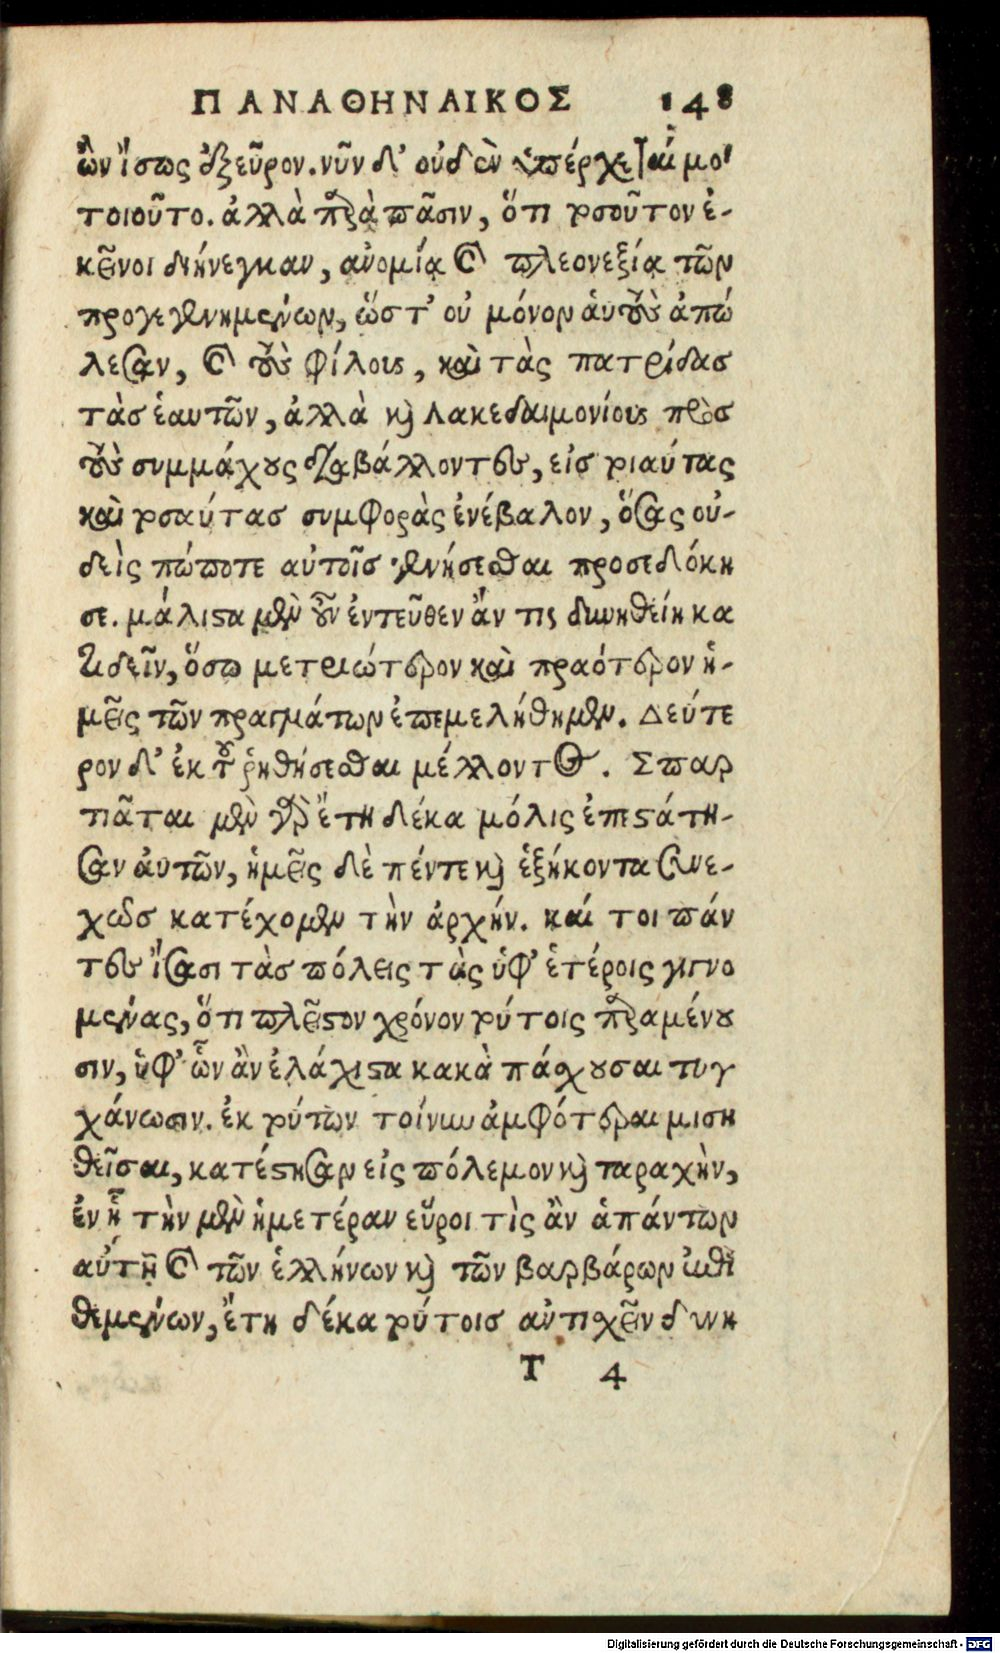 ΠΑΝΑΘΗΝΑΙΚΟΣ 148
ὼν ἴσως ἐξεῦρον. νῦν δ' οὐδὲν ἐπέρχεταί μοι
τοιοῦτο. ἀλλὰ παρὰ πᾶσιν, ὅτι τοσοῦτον ἐ-
κεῖνοι διήνεγκαν, ἀνομίᾳ καὶ πλεονεξίᾳ τῶν
προγεγενημένων, ὥστ' οὐ μόνον ἁυτοὺς ἀπώ
λεσαν, καὶ τοὺς φίλους, καὶ τὰς πατρίδας
τὰς ἑαυτῶν, ἀλλὰ καὶ Λακεδαιμονίους πρὸς
τοὺς συμμάχους διαβάλλοντες, εἰς τοιαύτας
καὶ τοσαύτας συμφορὰς ἐνέβαλον, ὅσας οὐ-
δεὶς πώποτε αὐτοῖς γενήσεσθαι προσεδόκη
σε. μάλιστα μὲν οὖν ἐντεῦθεν ἄν τις δυνηθείη κα
τιδεῖν, ὅσω μετριώτερον καὶ πραότερον ἡ-
μεῖς τῶν πραγμάτων ἐπεμελήθημεν. Δεύτε
ρον δ' ἐκ τοῦ ῥηθήσεσθαι μέλλοντος. Σπαρ
τιᾶται μὲν γὰρ ἔτη δέκα μόλις ἐπεστάτη-
σαν ἀυτῶν, ἡμεῖς δὲ πέντε καὶ ἑξήκοντα συνε-
χῶς κατέχομεν τὴν ἀρχήν. καί τοι πάν
τες ἴσασι τὰς πόλεις τὰς ὑφ' ἑτέροις γιγνο
μένας, ὅτι πλεῖστον χρόνον τούτοις παραμένου
σιν, ὑφ' ὧν ἂν ἐλάχιστα κακὰ πάσχουσαι τυγ
χάνωσιν. ἐκ τούτων τοίνυν ἀμφότεραι μιση
θεῖσαι, κατέστησαν εἰς πόλεμον καὶ ταραχὴν,
ἐν ᾗ τὴν μὲν ἡμετέραν εὕροι τὶς ἂν ἁπάντων
αὐτῇ καὶ τῶν ἑλλήνων καὶ τῶν βαρβάρων ἐπιτι
θεμένων, ἔτη δέκα τούτοις ἀντισχεῖν δυνη
T 4
Digitalisierung gefördert durch die Deutsche Forschungsgemeinschaft - DFG